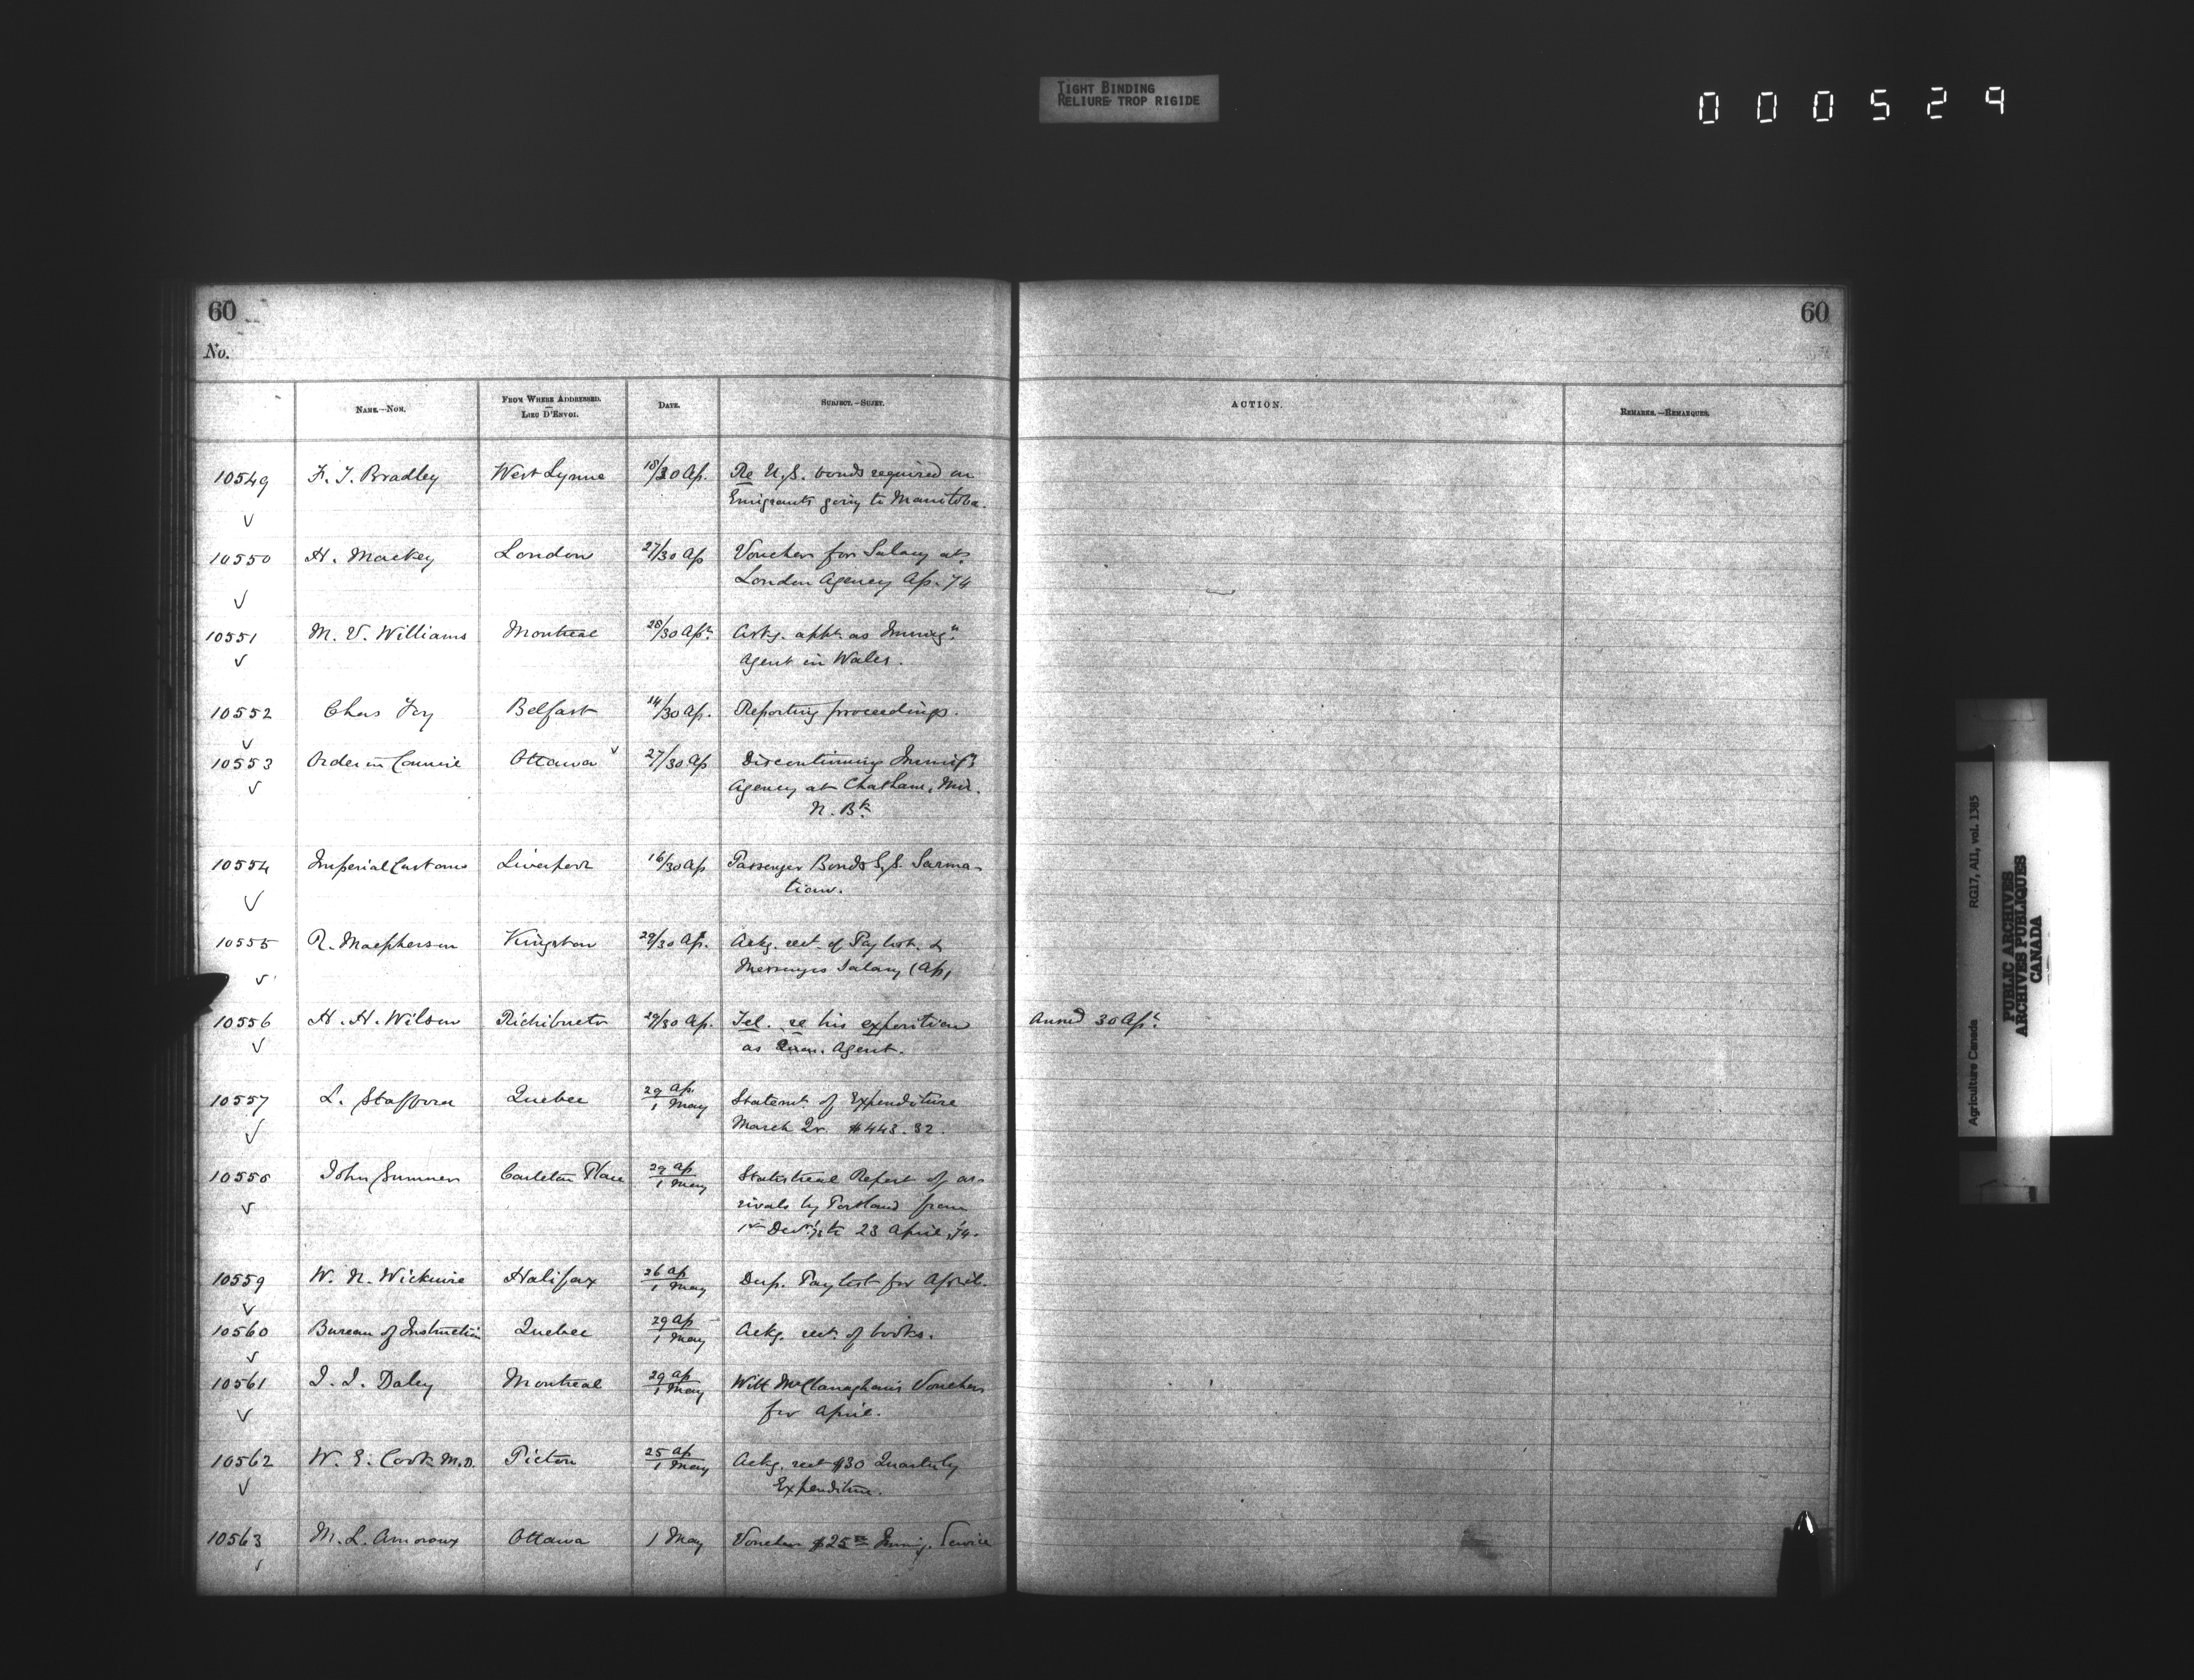 TIGHT BINDING
RELIURE TROP RIGIDE
000529
60
60
No.
NAME.—NOM.
FROM WHERE ADDRESSED.
LIEU D'ENVOI.
DATE.
SUBJECT.—SUJET.
ACTION.
REMARKS.—REMARQUES.
10549 F. T. Bradley West Lynne 18/30 Ap. Re U.S. bonds required on
Emigrants going to Manitoba.
10550 H. Mackey London 27/30 Ap Vouchers for Salary at
London Agency Ap. 74
10551 M. V. Williams Montreal 28/30 Apl. Askg. appt. as Immign.
Agent in Wales.
10552 Chas Foy Belfast 14/30 Ap. Reporting proceedings.
10553 Order in Council Ottawa 27/30 Ap Discontinuing Immign.
Agency at Chatham, Mir.
N. Bk.
10554 Imperial Customs Liverpool 16/30 Ap Passenger Bonds S.S. Sarma-
tian.
10555 R. Macpherson Kingston 29/30 Ap. Ackg. rect. of Paylist. &
Messengers Salary (Ap)
10556 H. H. Wilson Richibucto 29/30 Ap. Tel. re his position Ansd 30 Apl.
as Agent.
10557 L. Stafford Quebec 29 Ap. / 1 May Statemt. of Expenditure
March Qr. $443.32.
10558 John Sumner Carleton Place 29 Ap / 1 May Statistical Report of ar-
rivals by Portland from
1st Decr. '73 to 23 April, '74.
10559 W. N. Wickwire Halifax 26 Ap / 1 May Dup. Paylist for April.
10560 Bureau of Instruction Quebec 29 Ap / 1 May Ackg. rect. of books.
10561 J. J. Daley Montreal 29 Ap / 1 May With McClanaghan's Vouchers
for April.
10562 W. E. Cook M.D. Pictou 25 Ap / 1 May Ackg. rect $30 Quarterly
Expenditure.
10563 M. L. Amoroux Ottawa 1 May Voucher $25 Immig. Service
Agriculture Canada RG17, AII, vol. 1385
PUBLIC ARCHIVES
ARCHIVES PUBLIQUES
CANADA